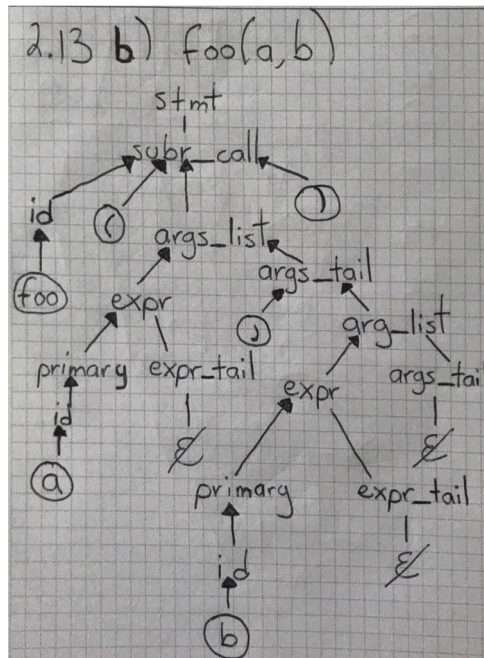 2.13 b) foo(a,b)
stmt
subr_call
id ( )
args_list
foo args_tail
expr , arg_list
primary expr_tail expr args_tail
id ε ε
a primary expr_tail
ε
id
b